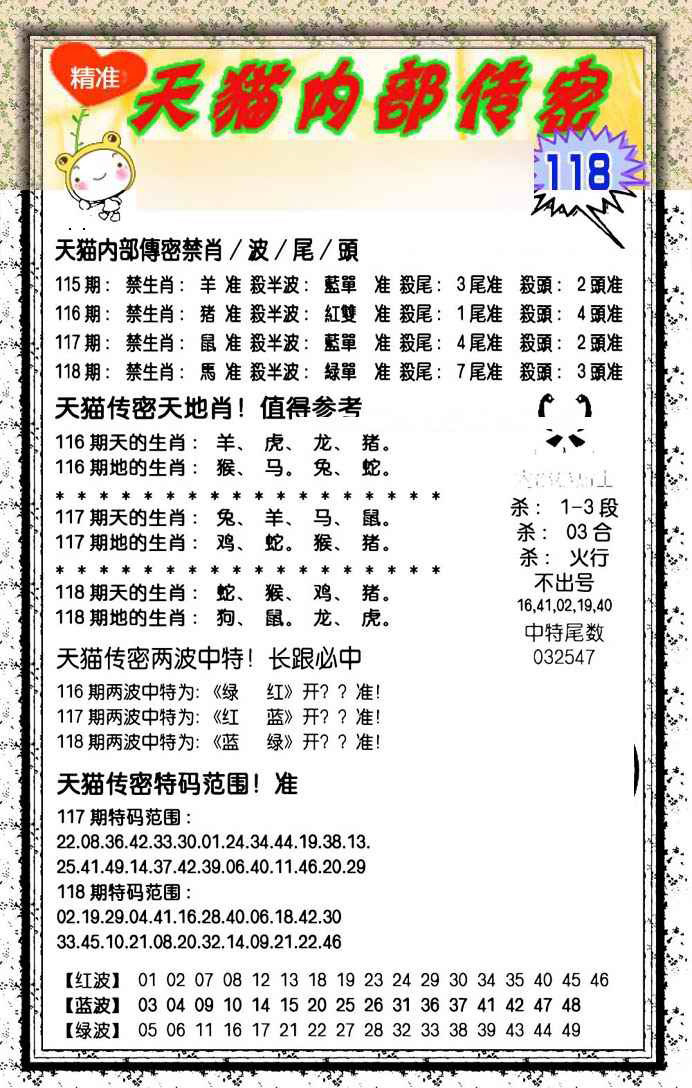 精准
天猫内部传密
118
天猫内部傳密禁肖/波/尾/頭
115期: 禁生肖: 羊 准 殺半波: 藍單 准 殺尾: 3尾准 殺頭: 2頭准
116期: 禁生肖: 猪 准 殺半波: 紅雙 准 殺尾: 1尾准 殺頭: 4頭准
117期: 禁生肖: 鼠 准 殺半波: 藍單 准 殺尾: 4尾准 殺頭: 2頭准
118期: 禁生肖: 馬 准 殺半波: 緑單 准 殺尾: 7尾准 殺頭: 3頭准
天猫传密天地肖! 值得参考
116期天的生肖: 羊、 虎、 龙、 猪。
116期地的生肖: 猴、 马。 兔、 蛇。
* * * * * * * * * * * * * * * * * *
117期天的生肖: 兔、 羊、 马、 鼠。
117期地的生肖: 鸡、 蛇。 猴、 猪。
* * * * * * * * * * * * * * * * * *
118期天的生肖: 蛇、 猴、 鸡、 猪。
118期地的生肖: 狗、 鼠。 龙、 虎。
杀: 1-3段
杀: 03合
杀: 火行
不出号
16,41,02,19,40
中特尾数
032547
天猫传密两波中特! 长跟必中
116期两波中特为:《绿 红》开? ? 准!
117期两波中特为:《红 蓝》开? ? 准!
118期两波中特为:《蓝 绿》开? ? 准!
天猫传密特码范围! 准
117期特码范围:
22.08.36.42.33.30.01.24.34.44.19.38.13.
25.41.49.14.37.42.39.06.40.11.46.20.29
118期特码范围:
02.19.29.04.41.16.28.40.06.18.42.30
33.45.10.21.08.20.32.14.09.21.22.46
【红波】 01 02 07 08 12 13 18 19 23 24 29 30 34 35 40 45 46
【蓝波】 03 04 09 10 14 15 20 25 26 31 36 37 41 42 47 48
【绿波】 05 06 11 16 17 21 22 27 28 32 33 38 39 43 44 49